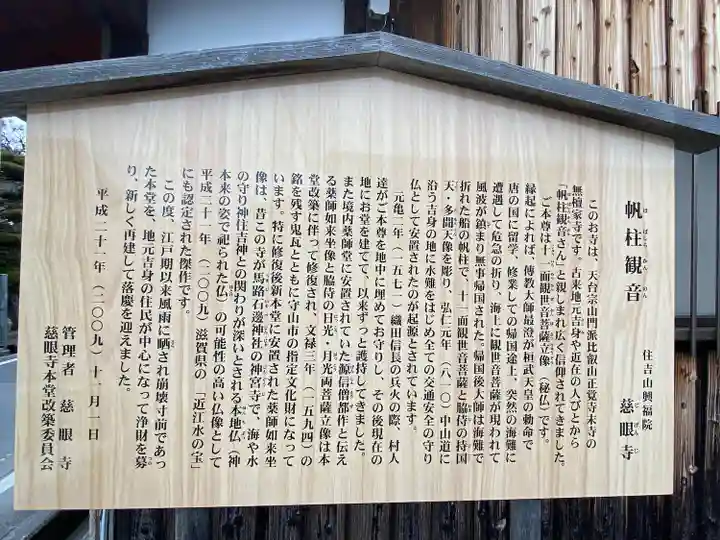 帆柱観音
ほばしらかんのん
住吉山興福院
慈眼寺
じげんじ
このお寺は、天台宗山門派比叡山正覚寺末寺の
無檀家寺です。古来地元吉身や近在の人びとから
「帆柱観音さん」と親しまれ広く信仰されてきました。
ご本尊は十一面観世音菩薩立像（秘仏）です。
縁起によれば、傳教大師最澄が桓武天皇の勅命で
唐の国に留学、修業しての帰国途上、突然の海難に
遭遇して危急の折り、海上に観世音菩薩が現われて
風波が鎮まり無事帰国された。帰国後大師は海難で
折れた船の帆柱で、十一面観音菩薩と脇侍の持国
天・多聞天像を彫り、弘仁元年（八一〇）中山道に
沿う吉身の地に水難をはじめ全ての交通安全の守り
仏として安置されたのが起源とされています。
元亀二年（一五七一）織田信長の兵火の際、村人
達がご本尊を地中に埋めてお守りし、その後現在の
地にお堂を建てて、以来ずっと護持してきました。
また境内薬師堂に安置されていた源信僧都作と伝え
る薬師如来坐像と脇侍の日光・月光両菩薩立像は本
堂改築に伴って修復され、文禄三年（一五九四）の
銘を残す鬼瓦とともに守山市の指定文化財になって
います。特に修復後新本堂に安置された薬師如来坐
像は、昔この寺が馬路石邊神社の神宮寺で、海や水
の守り神住吉神との関わりが深いとされる本地仏（神
本来の姿で祀られた仏）の可能性の高い仏像として
平成二十一年（二〇〇九）滋賀県の「近江水の宝」
にも認定された傑作です。
この度、江戸期以来風雨に晒され崩壊寸前であっ
た本堂を、地元吉身の住民が中心になって浄財を募
り、新しく再建して落慶を迎えました。
平成二十一年（二〇〇九）十一月一日
管理者　慈眼寺
慈眼寺本堂改築委員会